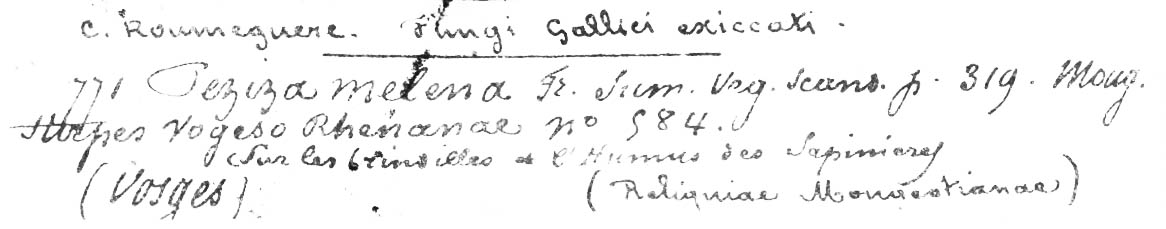 C. Roumeguere. Fungi Gallici exiccati.
771 Peziza melena Fr. Sum. Veg. Scand. p. 319. Moug.
Stirpes Vogeso Rhenanae no 584.
Sur les brindilles et l'Humus des Sapinieres
(Vosges) (Reliquiae Mougeotianae)